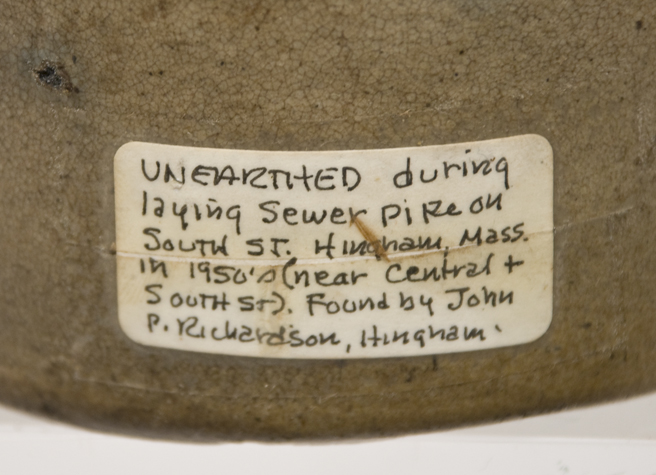 UNEARTHED during
laying Sewer pipe on
South ST. Hingham, Mass.
in 1950's (near Central +
South St). Found by John
P. Richardson, Hingham.